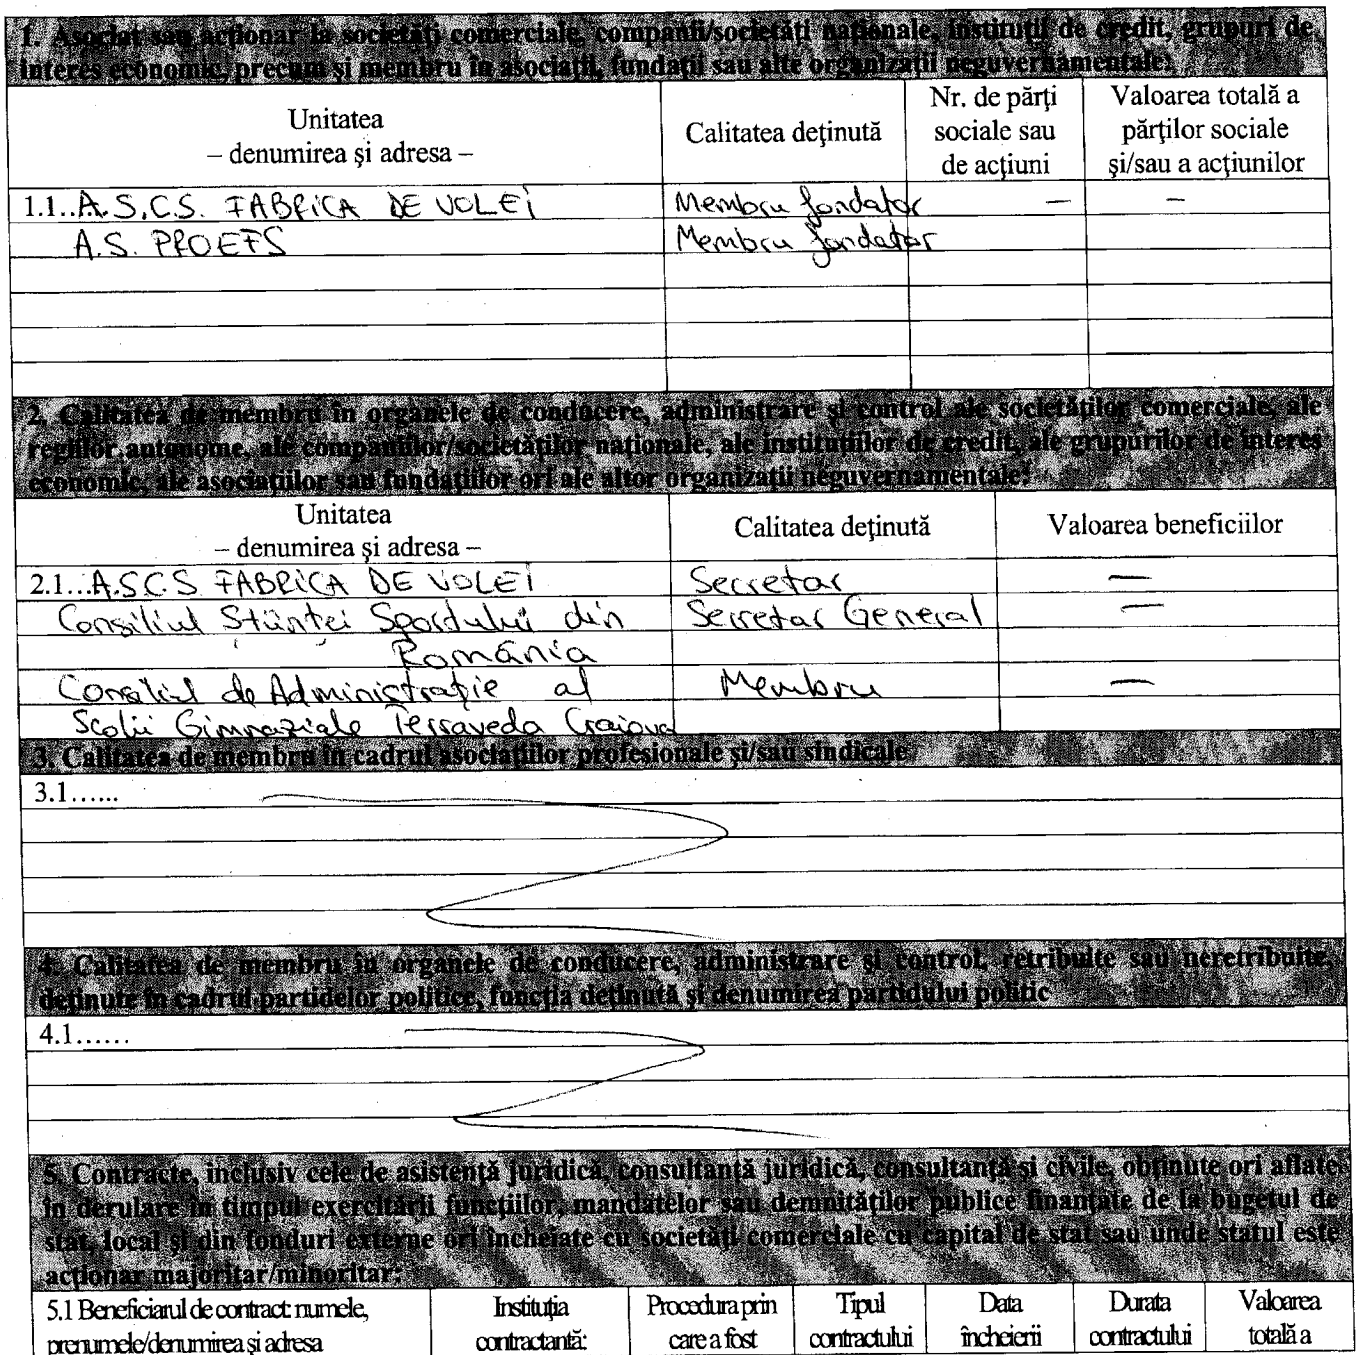 1. Asociat sau acționar la societăți comerciale, companii/societăți naționale, instituții de credit, grupuri de
interes economic, precum și membru în asociații, fundații sau alte organizații neguvernamentale:
Unitatea
– denumirea și adresa –
Calitatea deținută
Nr. de părți
sociale sau
de acțiuni
Valoarea totală a
părților sociale
și/sau a acțiunilor
1.1..A.S.C.S. FABRICA DE VOLEI Membru fondator – –
A.S. PROEFS Membru fondator
2. Calitatea de membru în organele de conducere, administrare și control ale societăților comerciale, ale
regiilor autonome, ale companiilor/societăților naționale, ale instituțiilor de credit, ale grupurilor de interes
economic, ale asociațiilor sau fundațiilor ori ale altor organizații neguvernamentale:
Unitatea
– denumirea și adresa –
Calitatea deținută
Valoarea beneficiilor
2.1...A.S.C.S. FABRICA DE VOLEI Secretar –
Consiliul Științei Sportului din Secretar General –
România
Consiliul de Administrație al Membru –
Scolii Gimnaziale Terraveda Craiova
3. Calitatea de membru în cadrul asociațiilor profesionale și/sau sindicale
3.1......
4. Calitatea de membru în organele de conducere, administrare și control, retribuite sau neretribuite,
deținute în cadrul partidelor politice, funcția deținută și denumirea partidului politic
4.1......
5. Contracte, inclusiv cele de asistență juridică, consultanță juridică, consultanță și civile, obținute ori aflate
în derulare în timpul exercitării funcțiilor, mandatelor sau demnităților publice finanțate de la bugetul de
stat, local și din fonduri externe ori încheiate cu societăți comerciale cu capital de stat sau unde statul este
acționar majoritar/minoritar:
5.1 Beneficiarul de contract: numele,
prenumele/denumirea și adresa
Instituția
contractantă:
Procedura prin
care a fost
Tipul
contractului
Data
încheierii
Durata
contractului
Valoarea
totală a